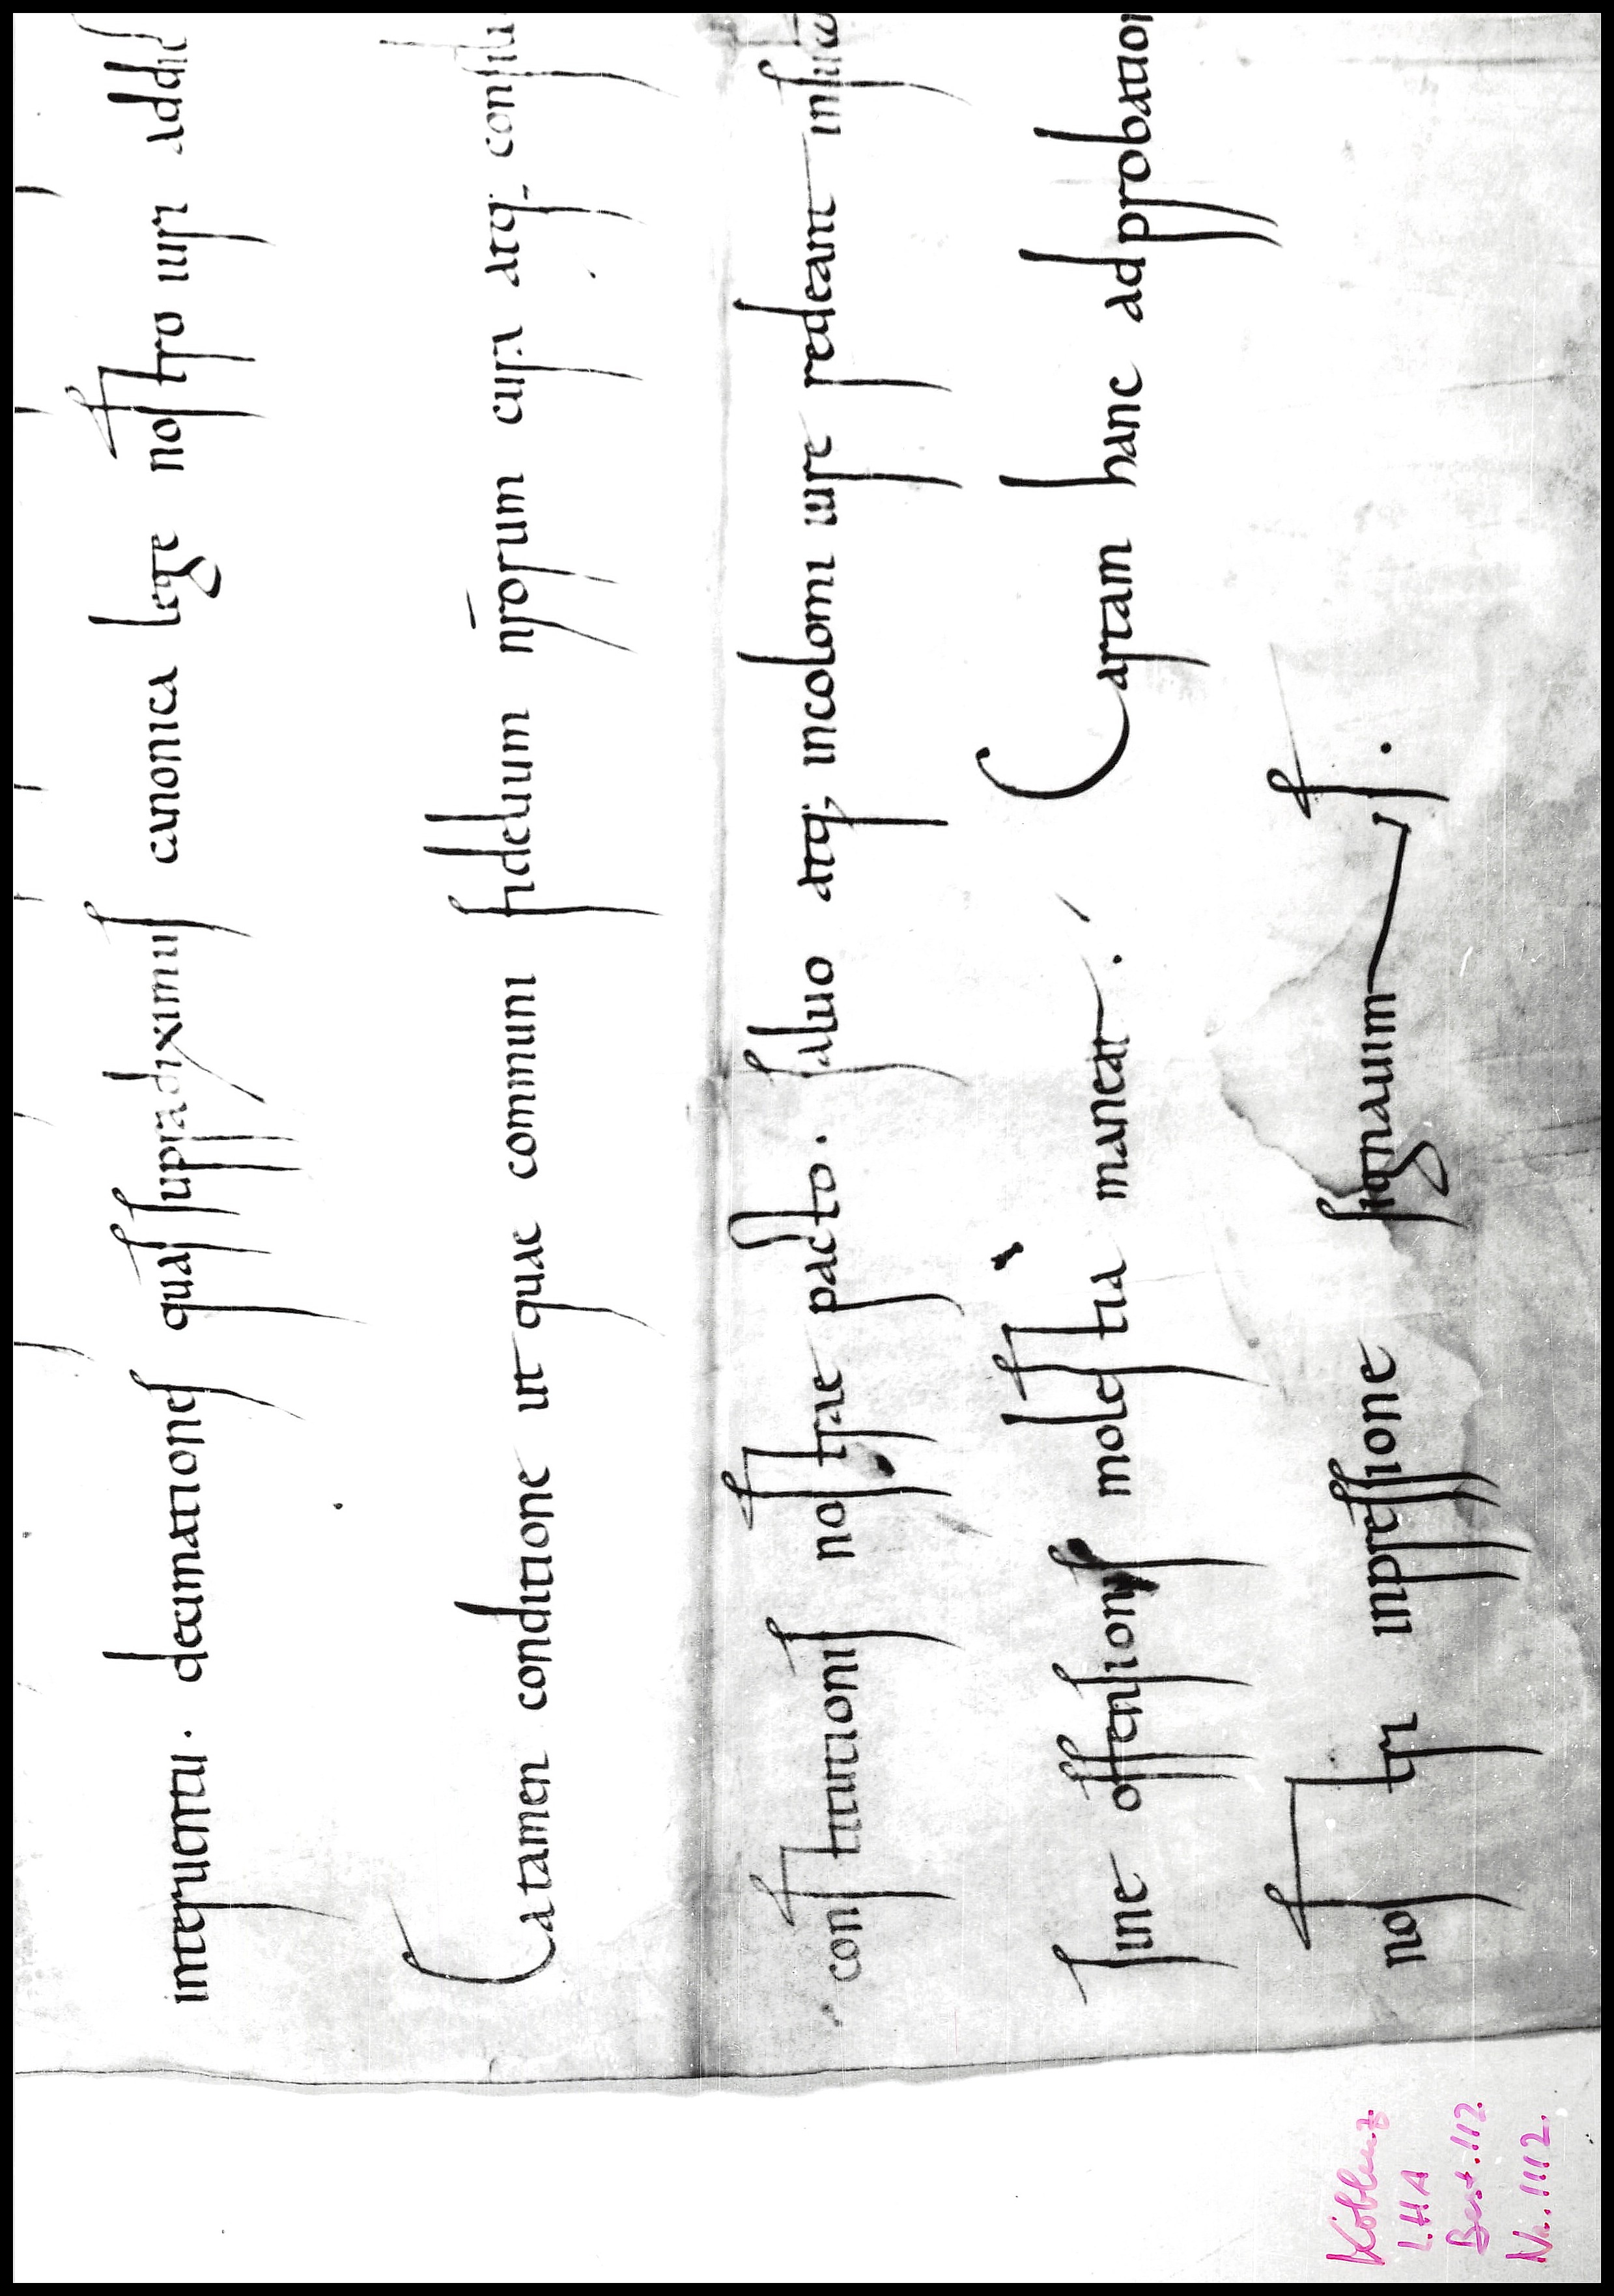 interuentu. decimationes quas supradiximus canonica lege nostro iuri addi
Ea tamen conditione ut quae communi fidelium nr̄orum cura atq; consilii
constitutionis nostrae pacto. saluo atq; incolomi iure redeant in
sine offensionis molestia maneat. Cartam hanc adprobation
nostri inpressione signauimus.
Koblenz
LHA
Best. 112
Nr. 1112.